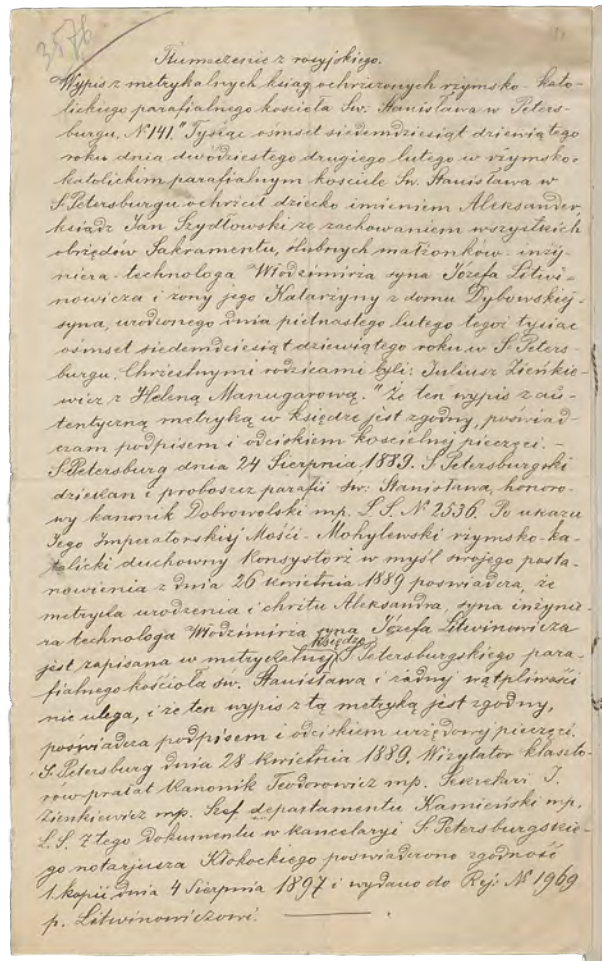 3576
Tłumaczenie z rosyjskiego.
Wypis z metrykalnych ksiąg ochrzczonych rzymsko-kato-
lickiego parafialnego kościoła Św: Stanisława w Peters-
burgu. N 141. "Tysiąc ośmset siedemdziesiąt dziewiątego
roku dnia dwódziestego drugiego lutego w rzymsko-
katolickim parafialnym kościele Św. Stanisława w
S. Petersburgu ochrzcił dziecko imieniem Aleksander,
ksiądz Jan Szydłowski ze zachowaniem wszystkich
obrzędów Sakramentu, ślubnych małżonków: inży-
niera-technologa Włodzimirza syna Józefa Litwi-
nowicza i żony jego Katarzyny z domu Dybowskiej-
syna, urodzonego dnia piętnastego lutego tegoż tysiąc
ośmset siedemdziesiąt dziewiątego roku w S. Peters-
burgu. Chrzestnymi rodzicami byli: Juliusz Zieńkie-
wicz z Heleną Manugarową." Że ten wypis z au-
tentyczną metryką w księdze jest zgodny, poświad-
czam podpisem i odciskiem kościelnej pieczęci. -
S. Petersburg dnia 24 Sierpnia 1889. S. Petersburgski
dziekan i proboszcz parafii Św: Stanisława, honoro-
wy kanonik Dobrowolski mp. L. S. N 2536. Po ukazu
Jego Imperatorskiej Mości - Mohylewski rzymsko-ka-
tolicki duchowny Konsystorz w myśl swojego posta-
nowienia z dnia 26 kwietnia 1889 poświadcza, że
metryka urodzenia i chrztu Aleksandra, syna inżynie-
ra technologa Włodzimirza syna Józefa Litwinowicza
jest zapisana w metrykalnej księdze S. Petersburgskiego para-
fialnego kościoła św. Stanisława i żadnej wątpliwości
nie ulega, i że ten wypis z tą metryką jest zgodny,
poświadcza podpisem i odciskiem urzędowej pieczęci.
S. Petersburg dnia 28 kwietnia 1889. Wizytator klaszto-
rów prałat kanonik Teodorowicz mp. Sekretarz J.
Zienkiewicz mp. Szef departamentu Kamieński mp.
L. S. Z tego dokumentu w kancelaryi S. Petersburgskie-
go notarjusza Kłokockiego poświadczono zgodność
1. kopii dnia 4 Sierpnia 1897 i wydano do Rej: N 1969
p. Litwinowiczowi.